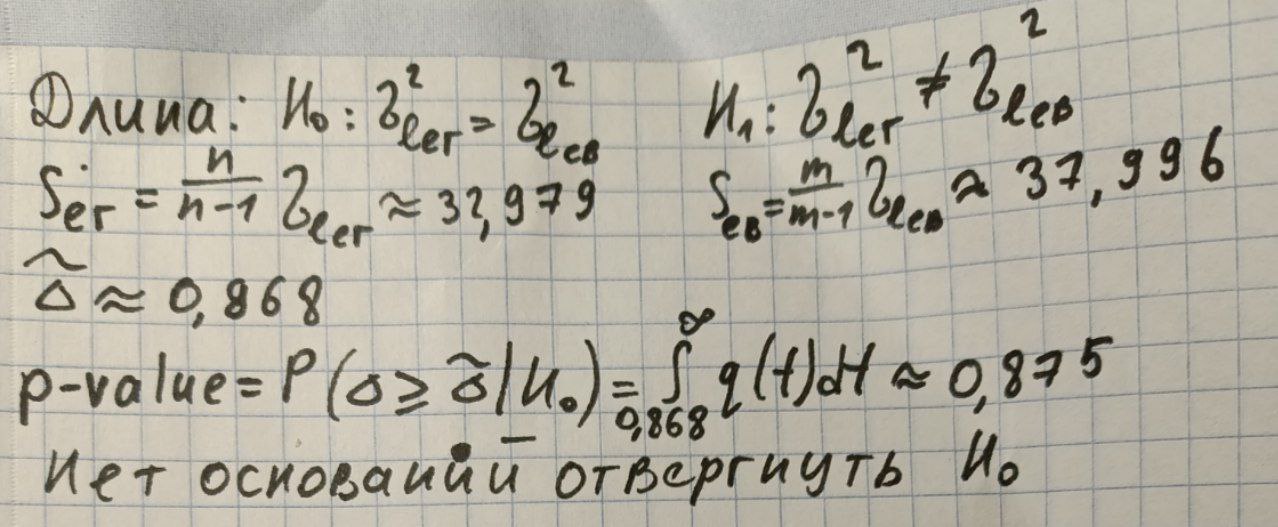 Длина: H₀: σ²ₗₑᵣ = σ²ₗₑᵦ H₁: σ²ₗₑᵣ ≠ σ²ₗₑᵦ
Sег = n/(n-1) σlег ≈ 32,979 Sев = m/(m-1) σlев ≈ 37,996
Δ̃ ≈ 0,868
p-value = P(Δ ≥ Δ̃ | H₀) = ∫_{0,868}^{∞} q(t)dt ≈ 0,875
Нет оснований отвергнуть H₀